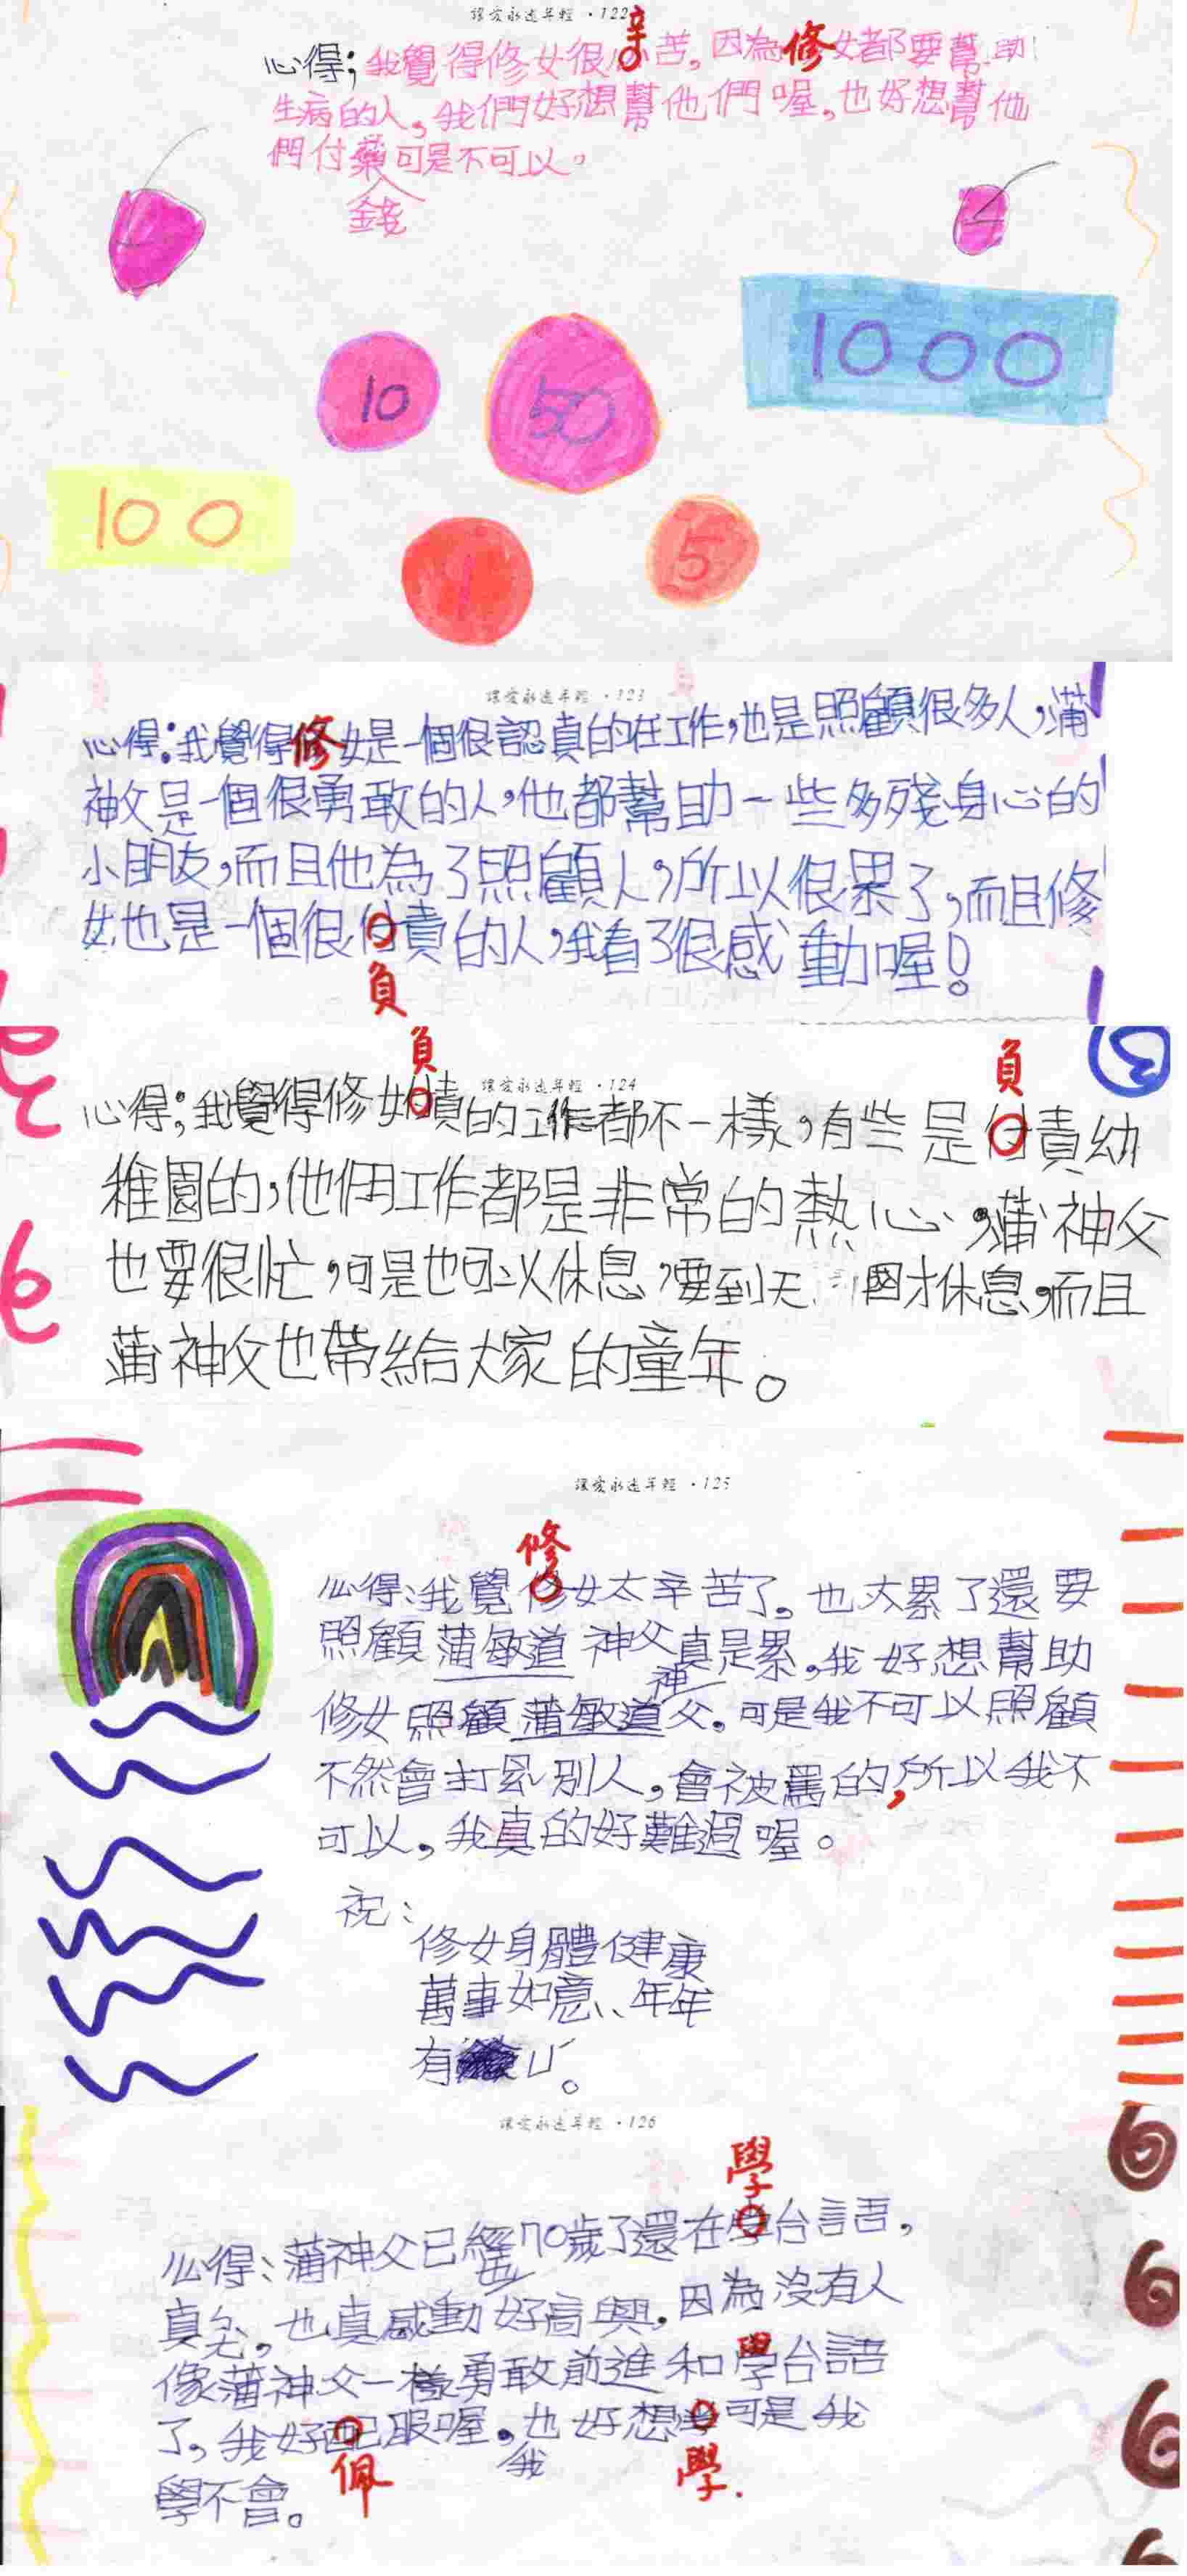 讓愛永遠年輕 · 122
辛
心得；我覺得修女很苦。因為修女都要幫助
生病的人，我們好想幫他們喔，也好想幫他
們付藥可是不可以。
錢
1000
10
50
100
1
5
讓愛永遠年輕 · 123
心得：我覺得修女是一個很認真的在工作，也是照顧很多人，蒲
神父是一個很勇敢的人，他都幫助一些多殘身心的
小朋友，而且他為了照顧人，所以很累了，而且修
女也是一個很付責的人，我看了很感動喔！
負
負
負
讓愛永遠年輕 · 124
心得；我覺得修女付責的工作都不一樣，有些是付責幼
稚園的，他們工作都是非常的熱心，蒲神父
也要很忙，可是也可以休息，要到天國才休息，而且
蒲神父也帶給大家的童年。
讓愛永遠年輕 · 125
修
心得：我覺修女太辛苦了。也太累了還要
照顧蒲敏道神父真是累，我好想幫助
神
修女照顧蒲敏道父。可是我不可以照顧
不然會打擾別人，會被罵的，所以我不
可以，我真的好難過喔。
祝：
修女身體健康
萬事如意、年年
有ㄩˊ。
讓愛永遠年輕 · 126
學
心得：蒲神父已經70歲了還在學台語，
也
真老，也真感動好高興，因為沒有人
像蒲神父一樣勇敢前進和學台語
了，我好配服喔。也好想學可是我
佩
我
學.
學不會。